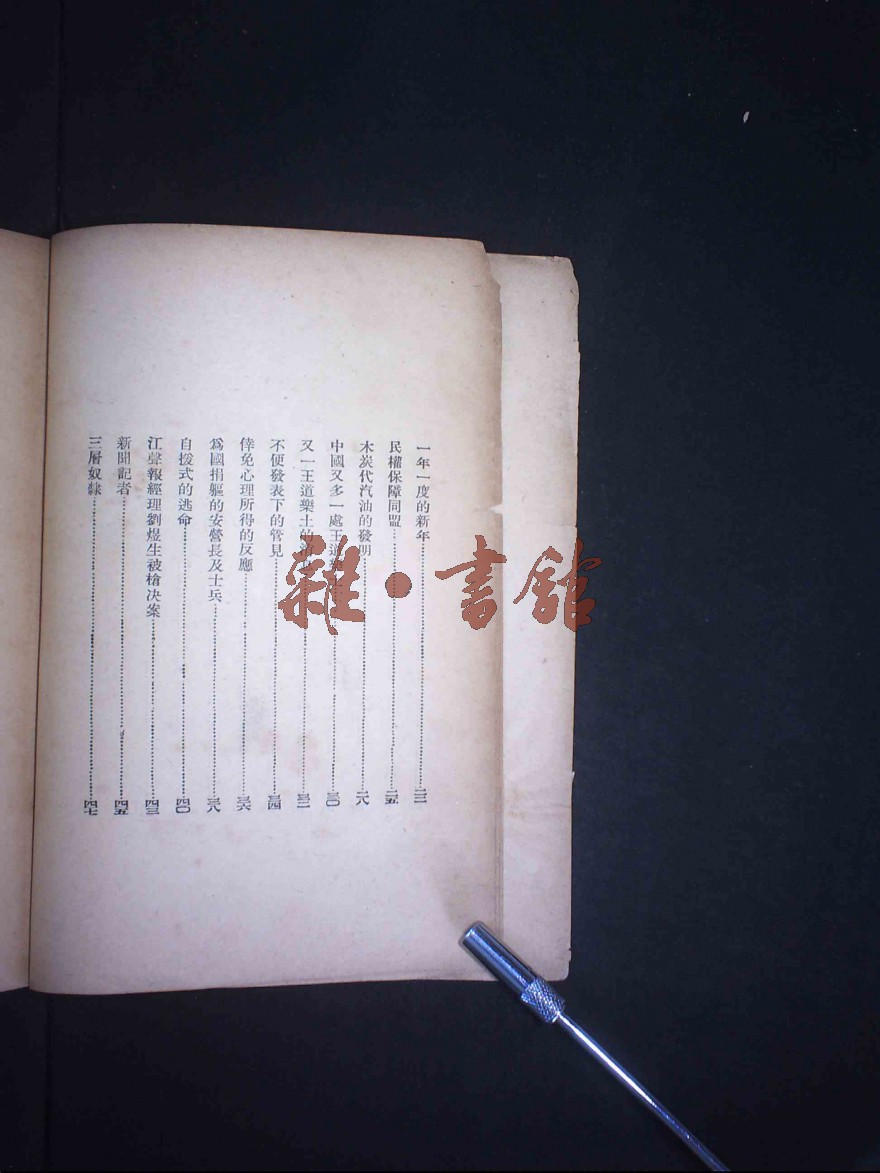 一年一度的新年……二二
民權保障同盟……二五
木炭代汽油的發明……二八
中國又多一處王道……三〇
又一王道樂土的……三二
不便發表下的管見……三四
倖免心理所得的反應……三六
爲國捐軀的安營長及士兵……三八
自援式的逃命……四〇
江聲報經理劉煜生被槍決案……四三
新聞記者……四五
三層奴隸……四七
雜·書館